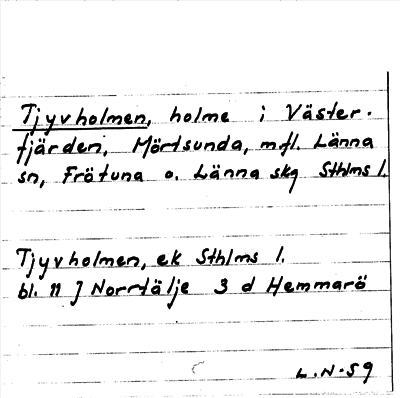 Tjyvholmen, holme i Väster-
fjärden, Mörtsunda, mfl. Länna
sn, Frötuna o. Länna skg Sthlms l.
Tjyvholmen, ek Sthlms l.
bl. 11 J Norrtälje 3 d Hemmarö
L.N-59